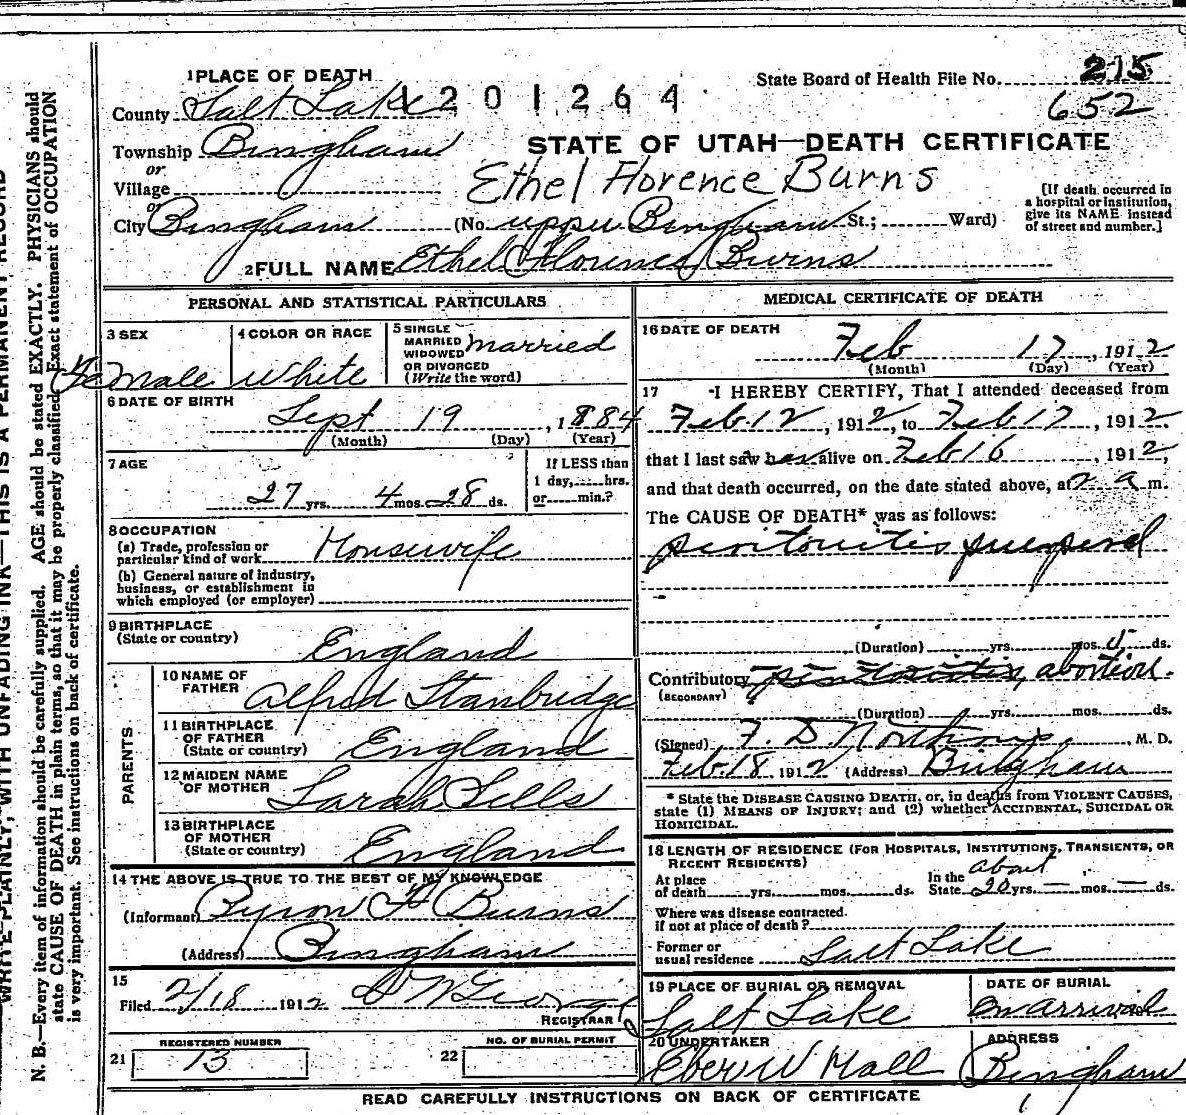 1 PLACE OF DEATH
State Board of Health File No. 215
County Salt Lake 1201264
652
Township Bingham
STATE OF UTAH—DEATH CERTIFICATE
or
Village
Ethel Florence Burns
[If death occurred in a hospital or institution, give its NAME instead of street and number.]
or
City Bingham (No. upper Bingham St.; Ward)
2 FULL NAME Ethel Florence Burns
PERSONAL AND STATISTICAL PARTICULARS
3 SEX
Female
4 COLOR OR RACE
White
5 SINGLE
MARRIED
WIDOWED
OR DIVORCED
(Write the word)
married
6 DATE OF BIRTH
Sept 19, 1884
(Month) (Day) (Year)
7 AGE
27 yrs. 4 mos. 28 ds.
If LESS than
1 day, hrs.
or min.?
8 OCCUPATION
(a) Trade, profession or
particular kind of work Housewife
(b) General nature of industry,
business, or establishment in
which employed (or employer)
9 BIRTHPLACE
(State or country)
England
PARENTS
10 NAME OF
FATHER
Alfred Stanbridge
11 BIRTHPLACE
OF FATHER
(State or country)
England
12 MAIDEN NAME
OF MOTHER
Sarah Sells
13 BIRTHPLACE
OF MOTHER
(State or country)
England
14 THE ABOVE IS TRUE TO THE BEST OF MY KNOWLEDGE
(Informant) Byron F Burns
(Address) Bingham
15
Filed 2/18 1912
REGISTRAR
REGISTERED NUMBER
21 13
NO. OF BURIAL PERMIT
22
MEDICAL CERTIFICATE OF DEATH
16 DATE OF DEATH
Feb 17, 1912
(Month) (Day) (Year)
17 I HEREBY CERTIFY, That I attended deceased from
Feb 12, 1912, to Feb 17, 1912
that I last saw her alive on Feb 16, 1912,
and that death occurred, on the date stated above, at 2 a m.
The CAUSE OF DEATH* was as follows:
peritonitis puerperal
(Duration) yrs. mos. 5 ds.
Contributory abortion.
(SECONDARY)
(Duration) yrs. mos. ds.
(Signed) F. D. Northrup, M. D.
Feb. 18, 1912 (Address) Bingham
* State the DISEASE CAUSING DEATH, or, in deaths from VIOLENT CAUSES,
state (1) MEANS OF INJURY; and (2) whether ACCIDENTAL, SUICIDAL OR
HOMICIDAL.
18 LENGTH OF RESIDENCE (FOR HOSPITALS, INSTITUTIONS, TRANSIENTS, OR
RECENT RESIDENTS)
At place of death yrs. mos. ds. In the State about 20 yrs. — mos. — ds.
Where was disease contracted.
if not at place of death?
Former or
usual residence Salt Lake
19 PLACE OF BURIAL OR REMOVAL
Salt Lake
DATE OF BURIAL
on arrival
20 UNDERTAKER
Eber W Hall
ADDRESS
Bingham
READ CAREFULLY INSTRUCTIONS ON BACK OF CERTIFICATE
WRITE PLAINLY, WITH UNFADING INK—THIS IS A PERMANENT RECORD
N. B.—Every item of information should be carefully supplied. AGE should be stated EXACTLY. PHYSICIANS should
state CAUSE OF DEATH in plain terms, so that it may be properly classified. Exact statement of OCCUPATION
is very important. See instructions on back of certificate.